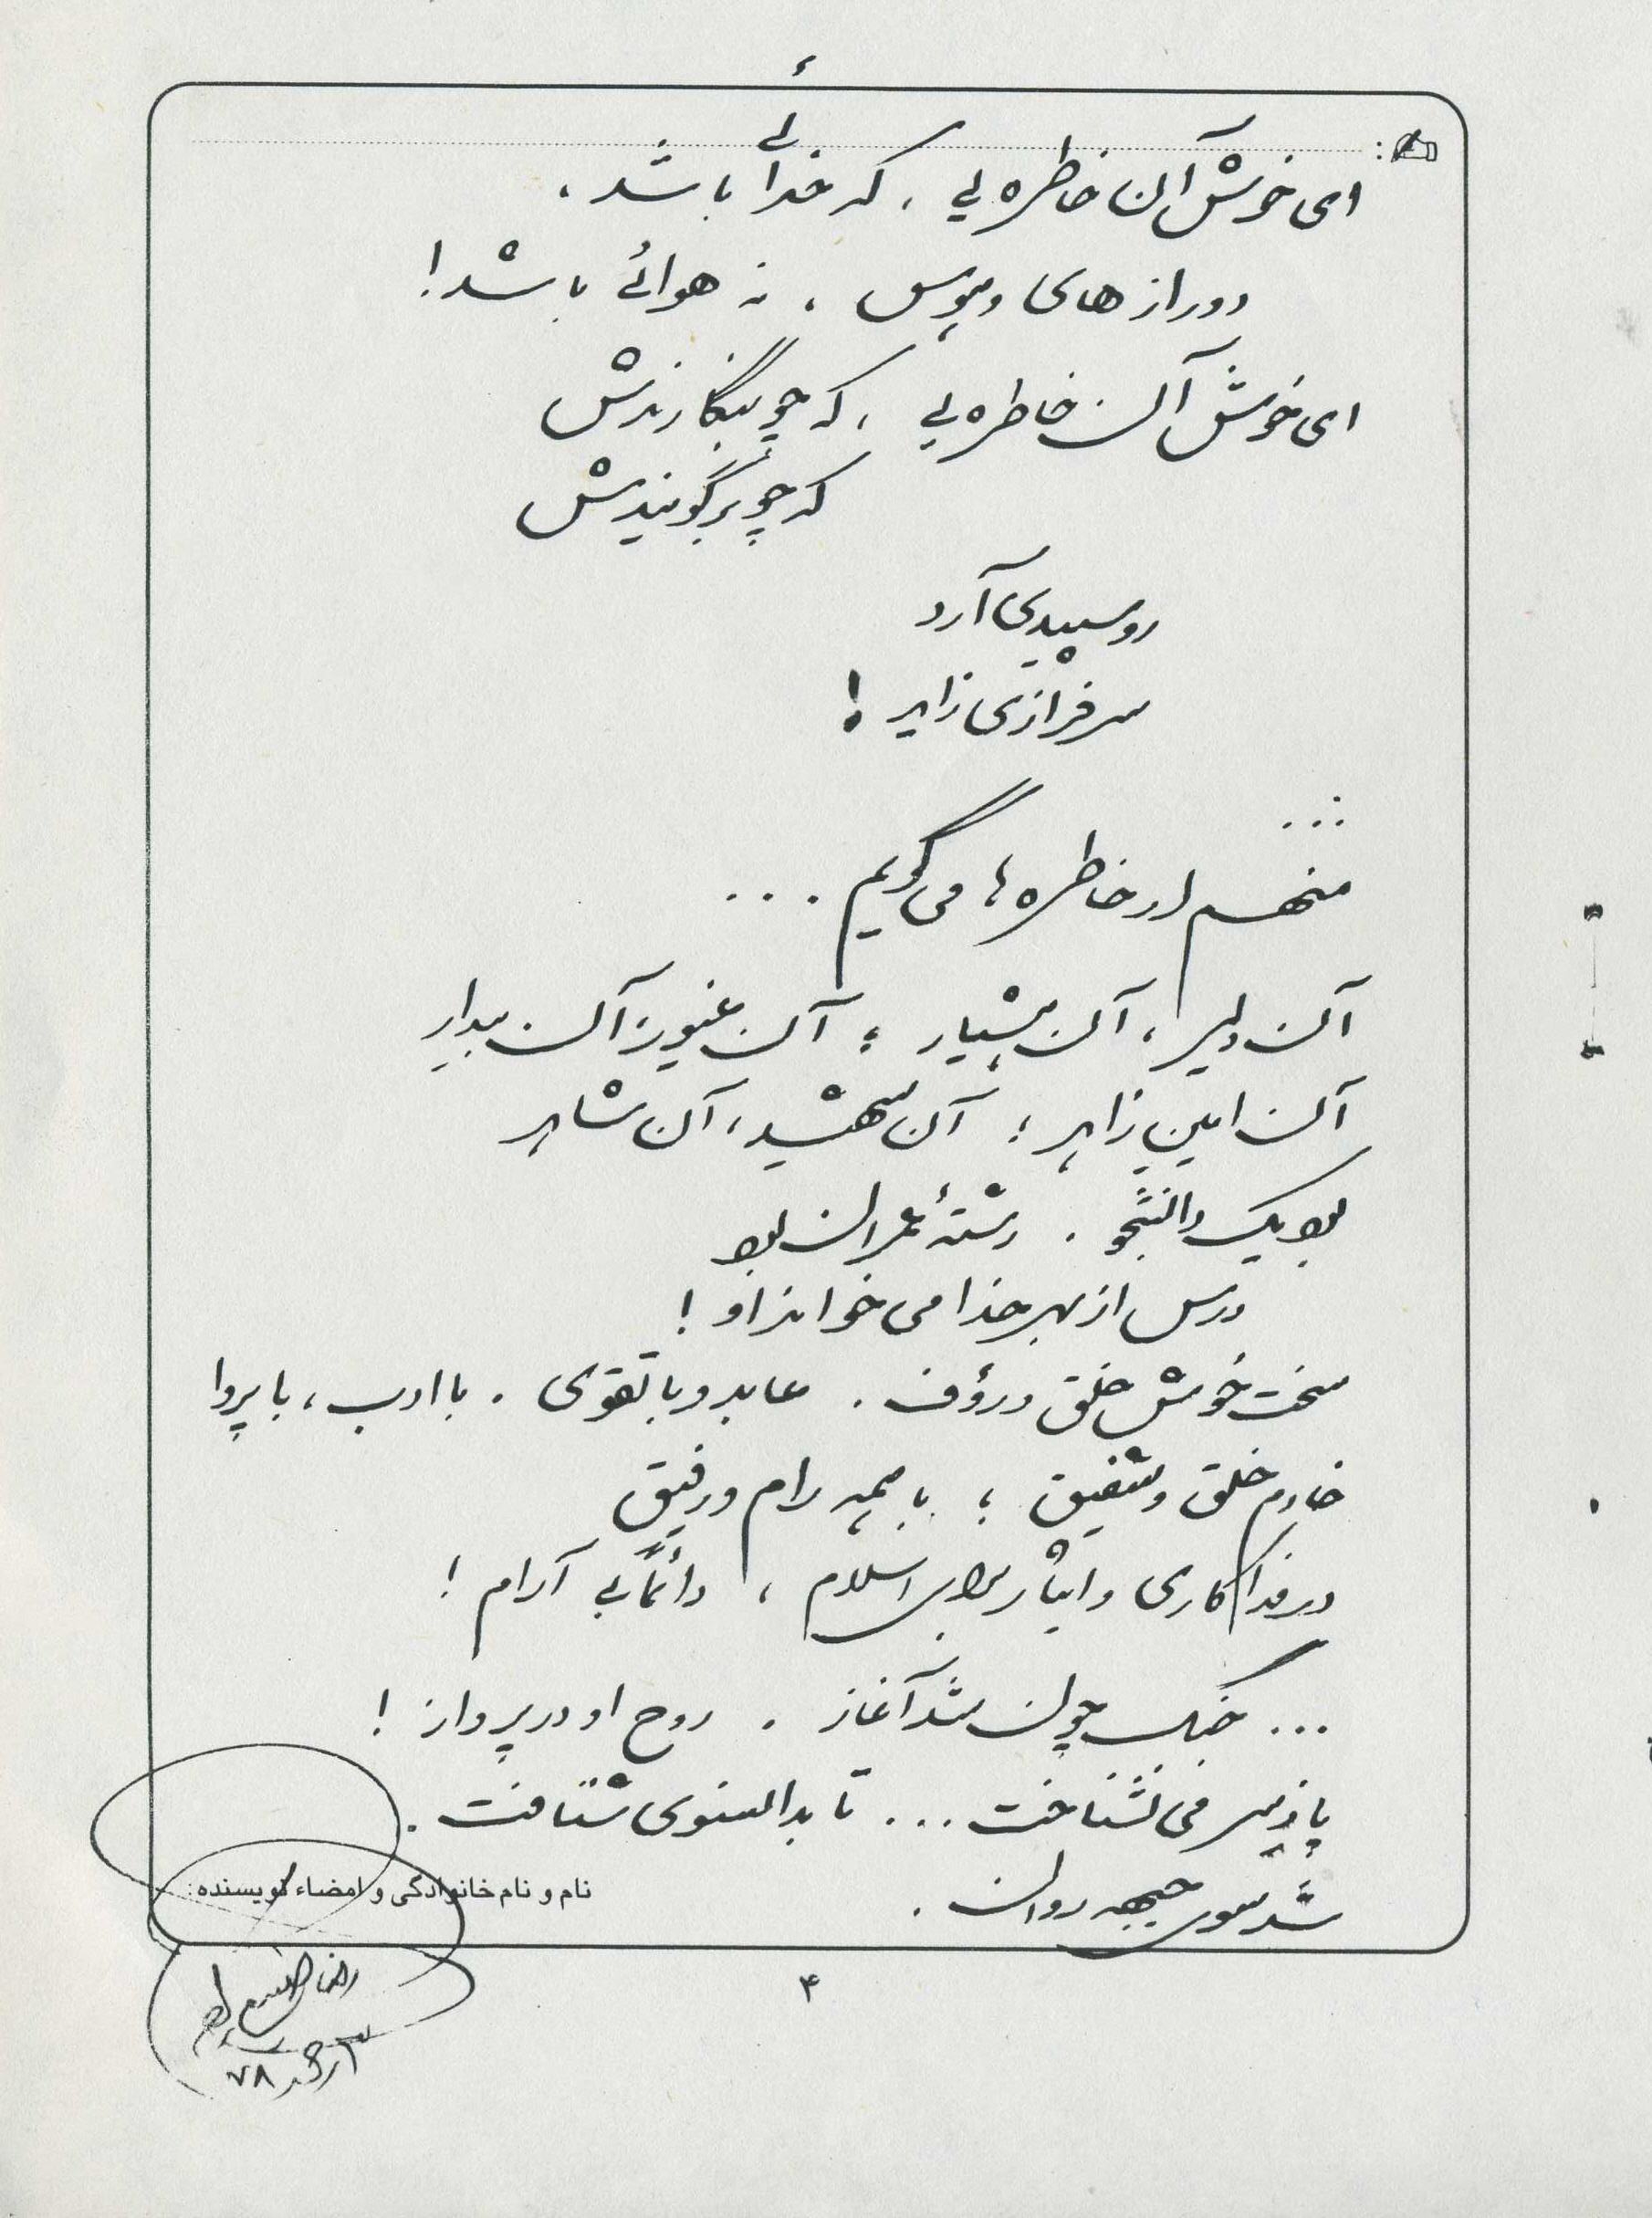 ای خوش آن خاطره یی، که خدائی باشد،
دور از های و هوس، نه هوائی باشد!
ای خوش آن خاطره یی، که چو بنگارندش
که چو برگویندش
روسپیدی آرد
سرفرازی زاید!
...
منهم از خاطره ها می گویم ...
آن دلیر، آن هشیار؛ آن غیور، آن بیدار
آن امین زاهد؛ آن شهید، آن شاهد
بود یک دانشجو. رشتهٔ عمران بود
درس از بهر خدا می خواند او!
سخت خوش خلق و رؤف. عابد و با تقوی. با ادب، با پروا
خادم خلق و شفیق؛ با همه رام و رفیق
در فداکاری و ایثار برای اسلام، دائماً بی آرام!
... جنگ چون شد آغاز. روح او در پرواز!
پا ز سر می نشناخت ... تا بدانسوی شتافت.
شد سوی جبهه روان.
نام و نام خانوادگی و امضاء نویسنده:
۴
رضا
۷۸